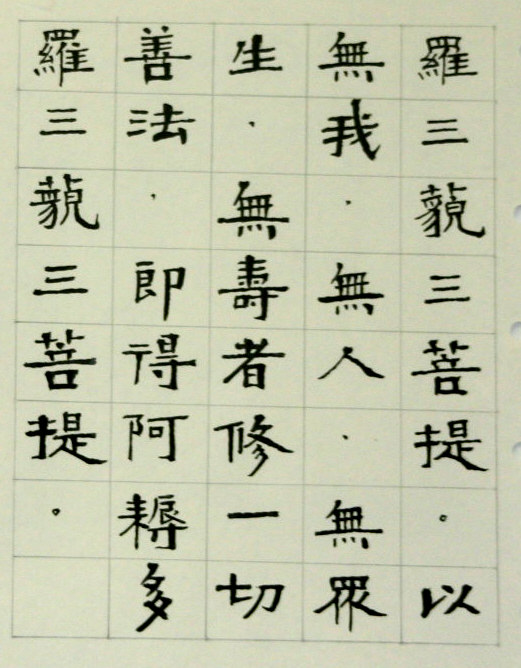 羅三藐三菩提。以
無我．無人．無眾
生．無壽者修一切
善法．即得阿耨多
羅三藐三菩提。